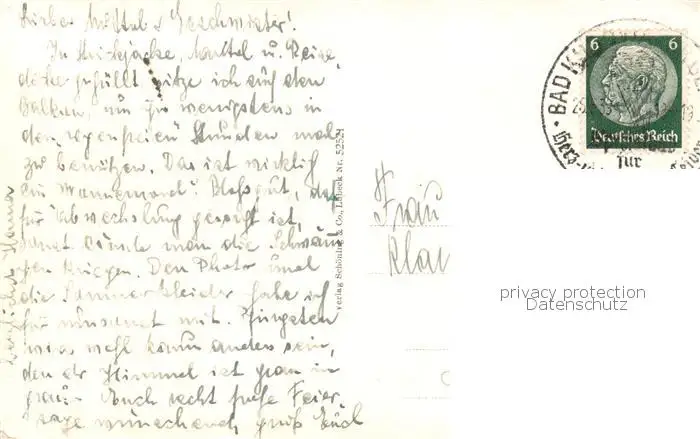 Liebe Muttel u Geschwister!
In Strickjacke, Mantel u. Reise
decke gehüllt sitze ich auf dem
Balkon, um ihn wenigstens in
den regenfreien Stunden mal
zu benützen. Das ist wirklich
ein Wonnemond! Bloß gut, daß
für Abwechslung gesorgt ist,
sonst könnte man die Schwäm
me kriegen. Den Photo und
die Sommerkleider habe ich
für umsonst mit. Pfingsten
wirds wohl kaum anders sein,
denn der Himmel ist grau in
grau. Euch recht frohe Feier
tage wünschend, grüßt Euch
herzlichst Hanna
Verlag Schöning & Co., Lübeck Nr. 52521
BAD
6 6
Deutsches Reich
Herz-
für
Frau
Klar
privacy protection
Datenschutz